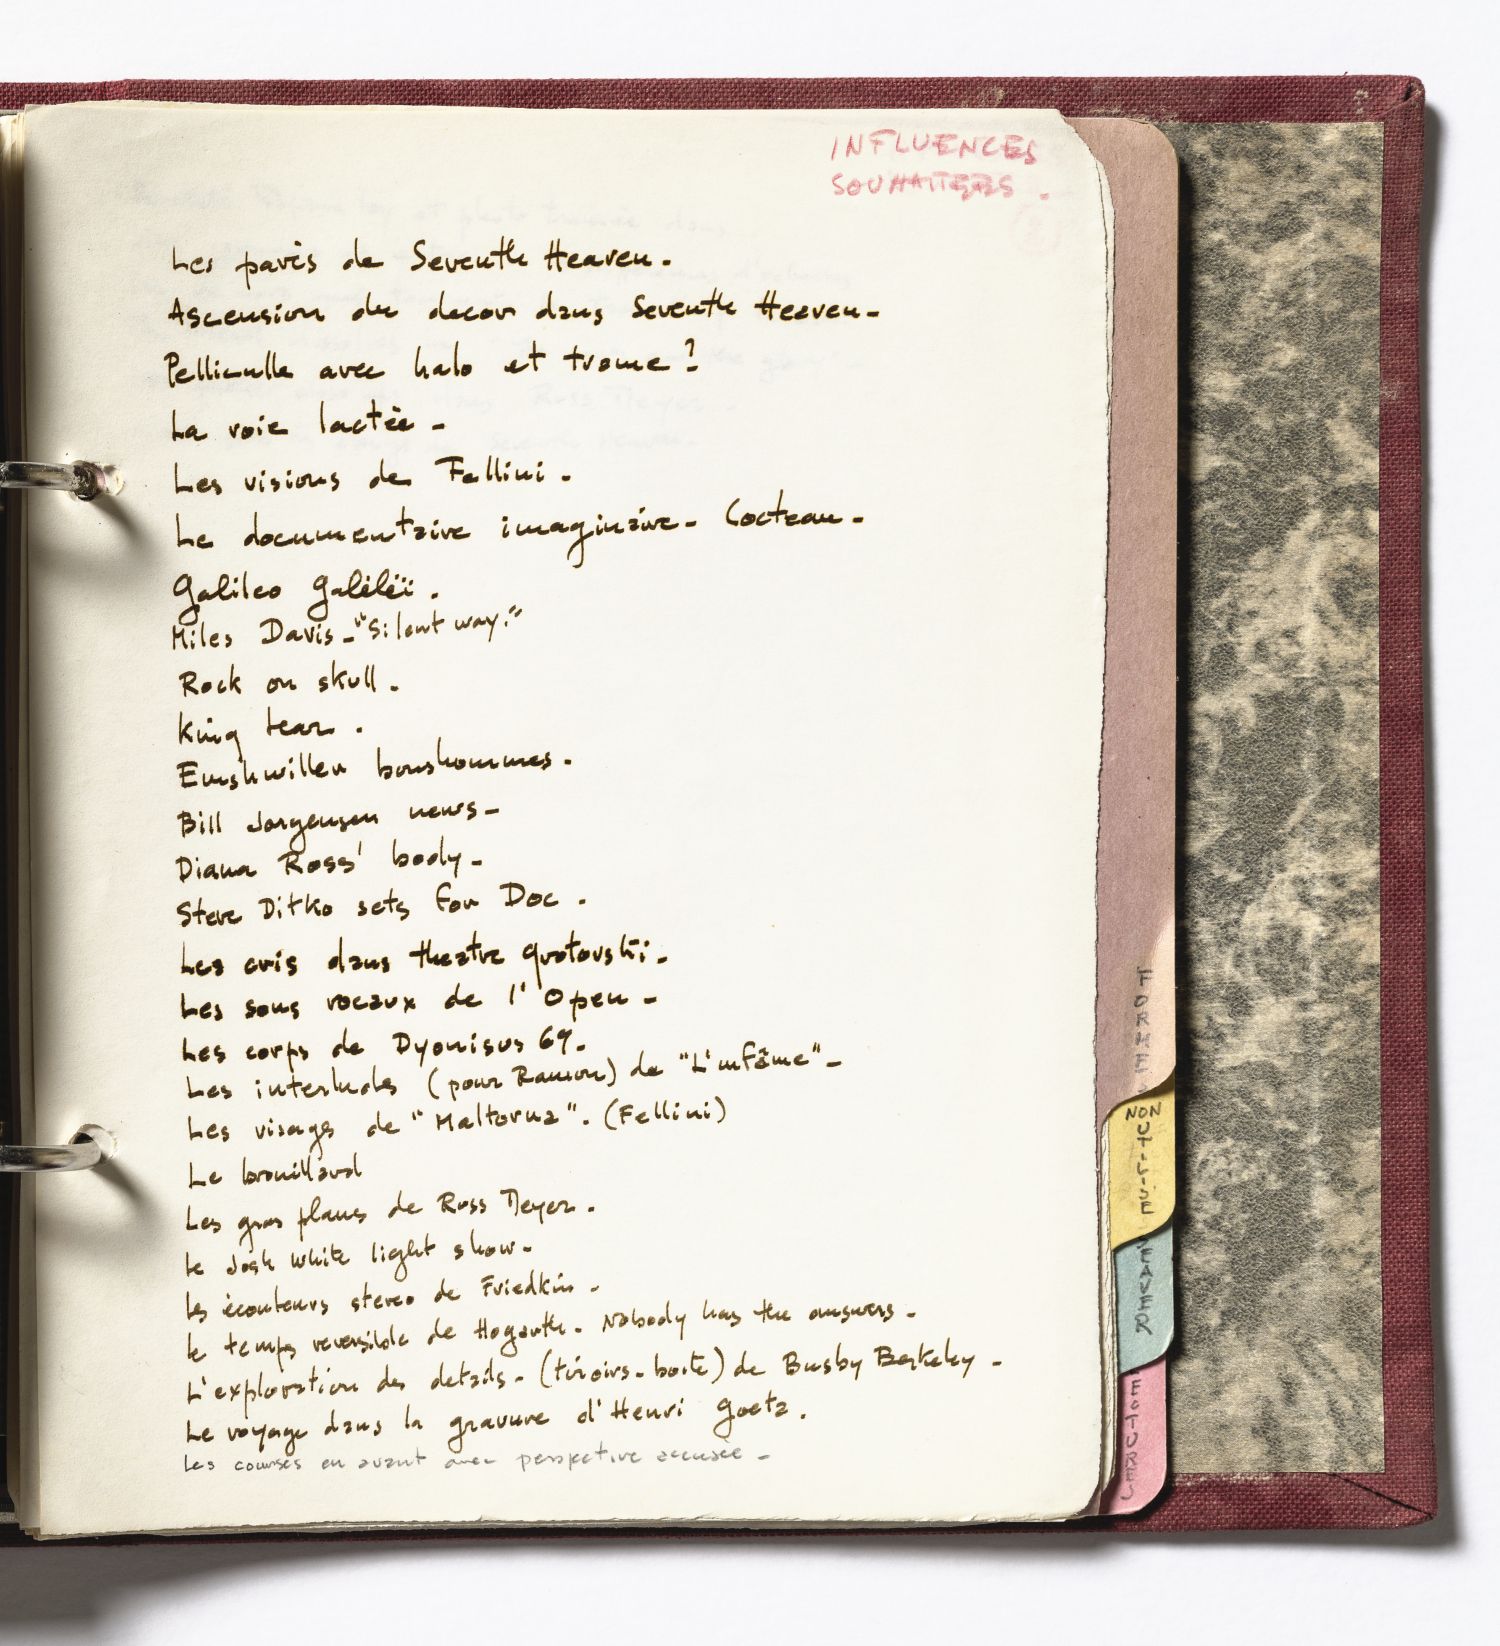 INFLUENCES
SOUHAITEES.
Les pavés de Seventh Heaven.
Ascension du decor dans Seventh Heaven -
Pelliculle avec halo et trame?
La voie lactée -
Les visions de Fellini.
Le documentaire imaginaire - Cocteau -
Galileo Galiléï.
Miles Davis - "Silent way."
Rock on skull.
King Lear.
Emshwiller bonshommes.
Bill Jorgensen news -
Diana Ross' body -
Steve Ditko sets for Doc.
Les cris dans theatre Grotovski -
Les sons vocaux de l'Open -
Les corps de Dyonisus 69.
Les interludes (pour Ramon) de "L'infâme" -
Les visages de "Maltorna". (Fellini)
Le brouillard
Les gros plans de Russ Meyer.
Le Josh White light show -
Les écouteurs stereo de Friedkin -
Le temps reversible de Hogarth - Nobody has the answers -
L'exploration des details - (tiroirs - boite) de Busby Berkeley -
Le voyage dans la gravure d'Henri Goetz.
Les courses en avant avec perspective accusée -
FORMES
NON
UTILISE
LECTURES